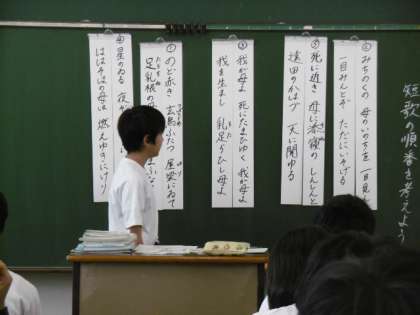 短歌の順番を考えよう
みちのくの 母のいのちを 一目見
一目みんとぞ ただにいそげる
死に近き 母に添寝の しんしんと
遠田のかはづ 天に聞ゆる
我が母よ 死にたまひゆく 我が母よ
我を生まし 乳足らひし母よ
のど赤き 玄鳥ふたつ 屋梁にゐて
足乳根の
星のゐる 夜
ははそはの母は 燃えゆきにけり